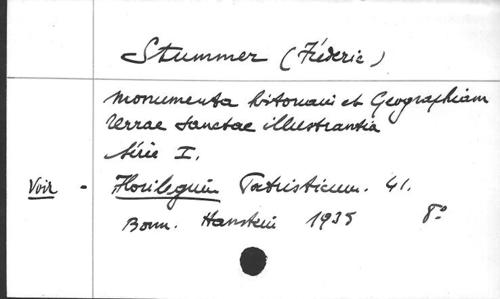 Stummer (Fréderic)
Monumenta historiam et Geographiam
terrae sanctae illustrantia
Série I.
Voir - Florilegium Patristicum. 41.
Bonn. Hanstein 1935 8°